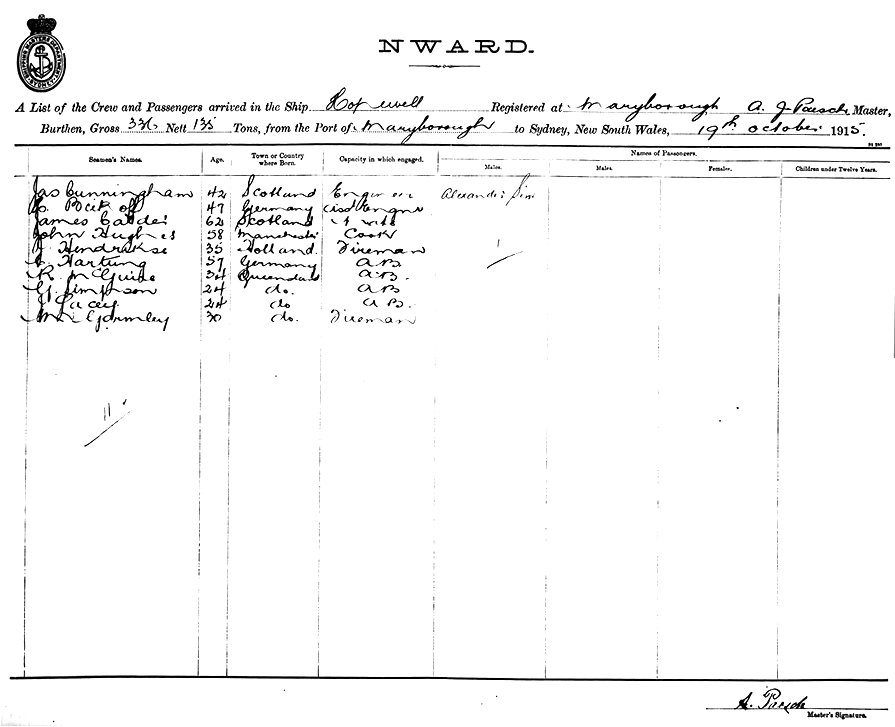 NWARD.
A List of the Crew and Passengers arrived in the Ship Hopewell Registered at Maryborough A. J. Paesch Master,
Burthen, Gross 336 Nett 135 Tons, from the Port of Maryborough to Sydney, New South Wales, 19th October 1915.
Names of Passengers.
Seamen's Names. Age. Town or Country where Born. Capacity in which engaged. Males. Males. Females. Children under Twelve Years.
Jas Cunningham 42 Scotland Engineer Alexander Sim
47 Germany
James Calder 62 Scotland
John Hughes 58 Manchester Cook
J Hendrikse 35 Holland. Fireman 1
Hartung 57 Germany A.B.
R. McGuire 34 A.B.
G. Simpson 24 do. AB
J Lacey 24 do AB.
Gormley 30 do. Fireman
11
A. Paesch
Master's Signature.